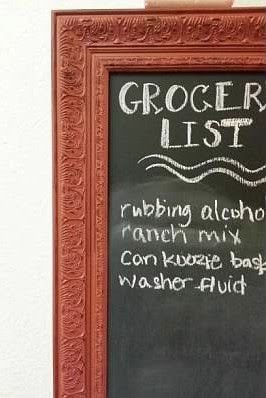 GROCER
LIST
rubbing alcoho
ranch mix
can koozie bask
washer fluid